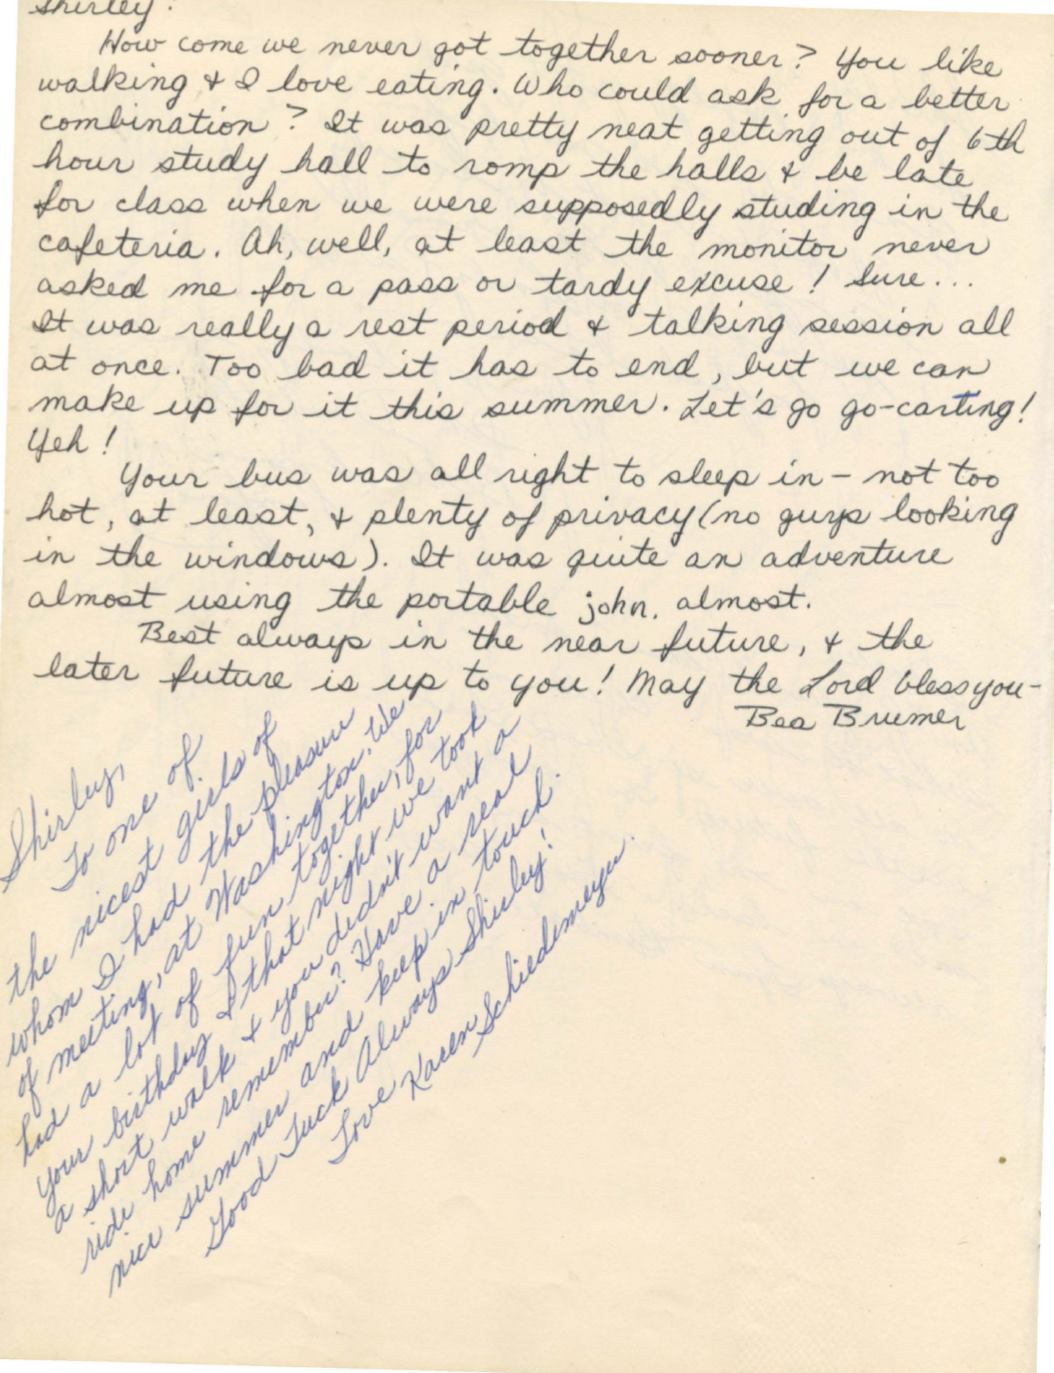 Shirley:
How come we never got together sooner? You like
walking & I love eating. Who could ask for a better
combination? It was pretty neat getting out of 6th
hour study hall to romp the halls & be late
for class when we were supposedly studing in the
cafeteria. Ah, well, at least the monitor never
asked me for a pass or tardy excuse! Sure...
It was really a rest period & talking session all
at once. Too bad it has to end, but we can
make up for it this summer. Let's go go-carting!
Yeh!
Your bus was all right to sleep in - not too
hot, at least, & plenty of privacy (no guys looking
in the windows). It was quite an adventure
almost using the portable john. almost.
Best always in the near future, & the
later future is up to you! May the Lord bless you-
Bea Brumer
Shirley,
To one of
the nicest girls of
whom I had the pleasure
of meeting, at Washington. We
had a lot of fun together, for
your birthday & that night we took
a short walk & you didn't want a
ride home remember? Have a real
nice summer and keep in touch.
Good Luck Always Shirley!
Love Karen Schiedemeyer.